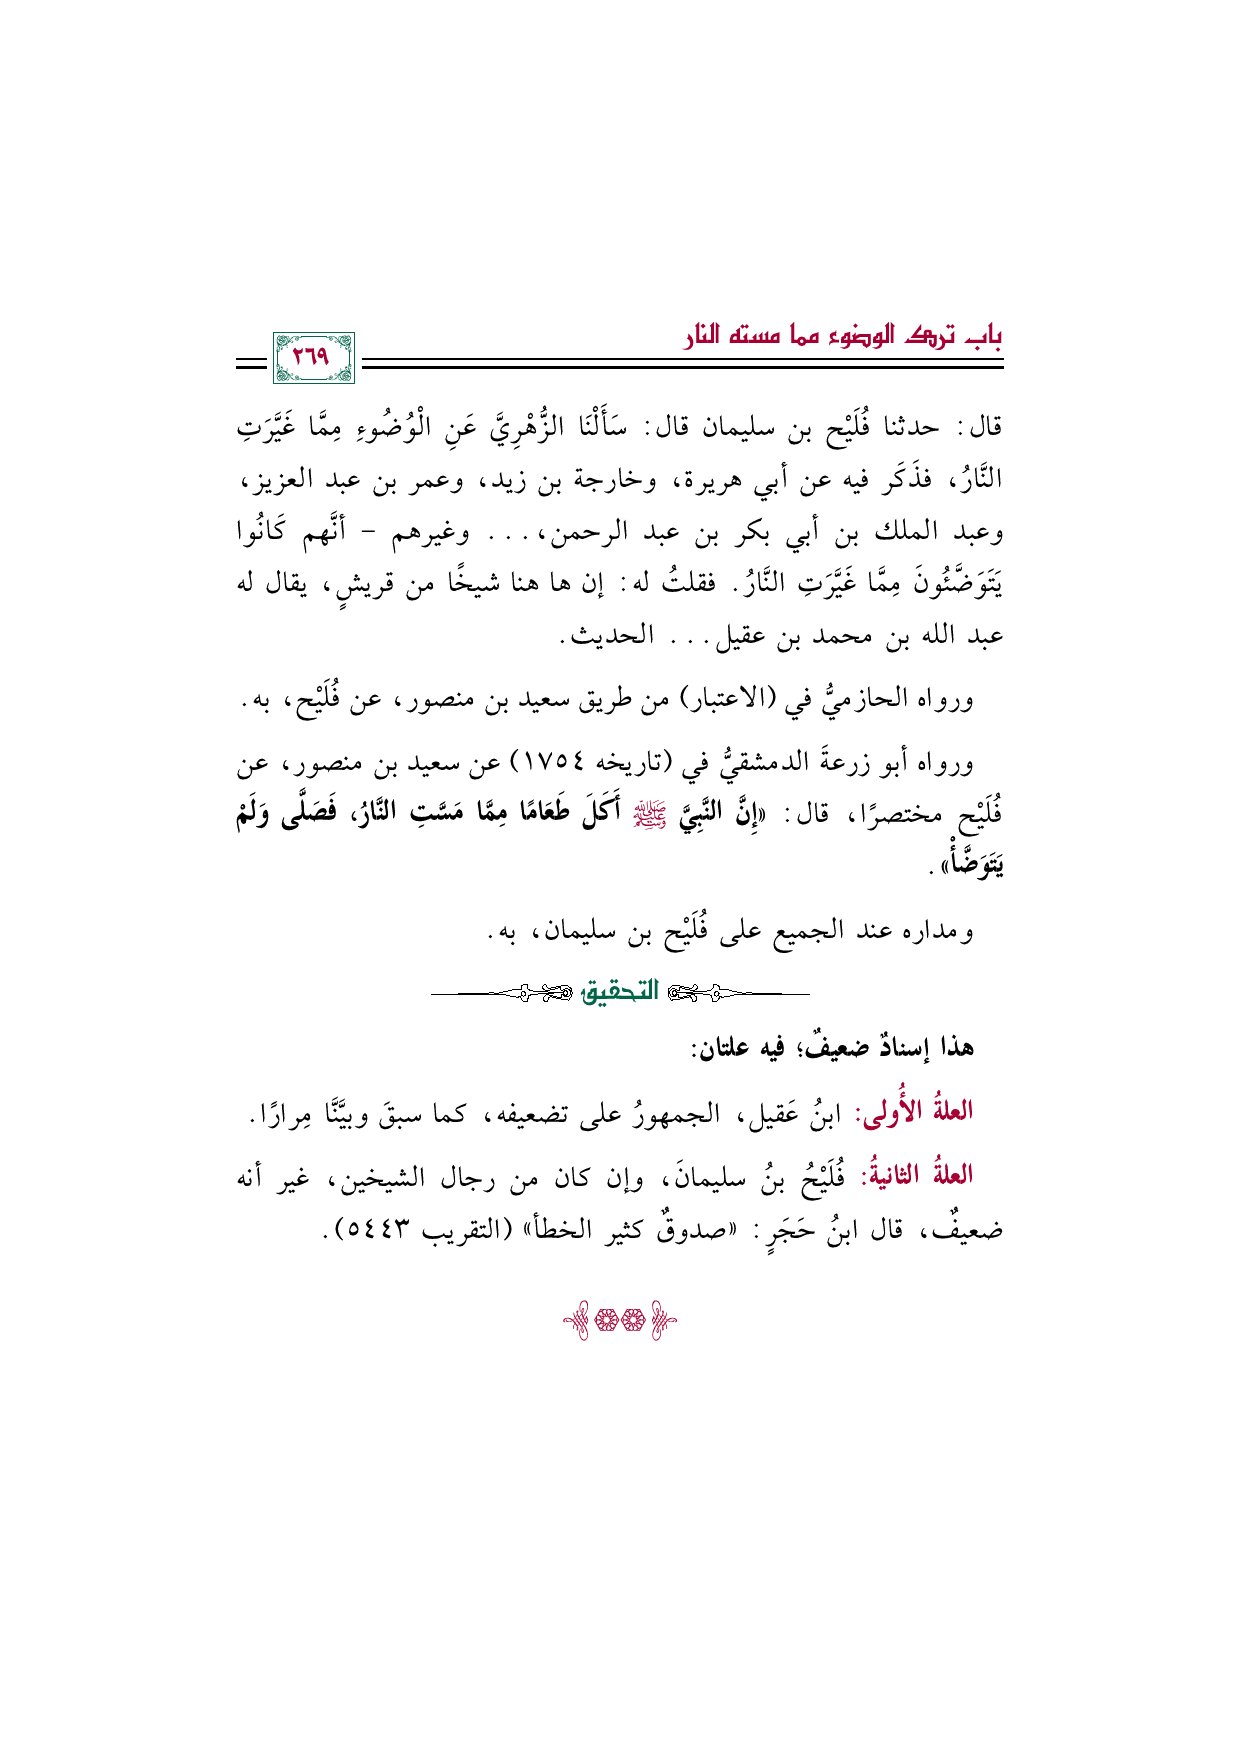 باب ترك الوضوء مما مسته النار
٢٦٩
قال: حدثنا فُلَيْح بن سليمان قال: سَأَلْنَا الزُّهْرِيَّ عَنِ الْوُضُوءِ مِمَّا غَيَّرَتِ
النَّارُ، فذَكَر فيه عن أبي هريرة، وخارجة بن زيد، وعمر بن عبد العزيز،
وعبد الملك بن أبي بكر بن عبد الرحمن،... وغيرهم - أنَّهم كَانُوا
يَتَوَضَّئُونَ مِمَّا غَيَّرَتِ النَّارُ. فقلتُ له: إن ها هنا شيخًا من قريشٍ، يقال له
عبد الله بن محمد بن عقيل... الحديث.
ورواه الحازميُّ في (الاعتبار) من طريق سعيد بن منصور، عن فُلَيْح، به.
ورواه أبو زرعةَ الدمشقيُّ في (تاريخه ١٧٥٤) عن سعيد بن منصور، عن
فُلَيْح مختصرًا، قال: «إِنَّ النَّبِيَّ ﷺ أَكَلَ طَعَامًا مِمَّا مَسَّتِ النَّارُ، فَصَلَّى وَلَمْ
يَتَوَضَّأْ».
ومداره عند الجميع على فُلَيْح بن سليمان، به.
التحقيق
هذا إسنادٌ ضعيفٌ؛ فيه علتان:
العلةُ الأُولى: ابنُ عَقيل، الجمهورُ على تضعيفه، كما سبقَ وبيَّنَّا مِرارًا.
العلةُ الثانيةُ: فُلَيْحُ بنُ سليمانَ، وإن كان من رجال الشيخين، غير أنه
ضعيفٌ، قال ابنُ حَجَرٍ: «صدوقٌ كثير الخطأ» (التقريب ٥٤٤٣).